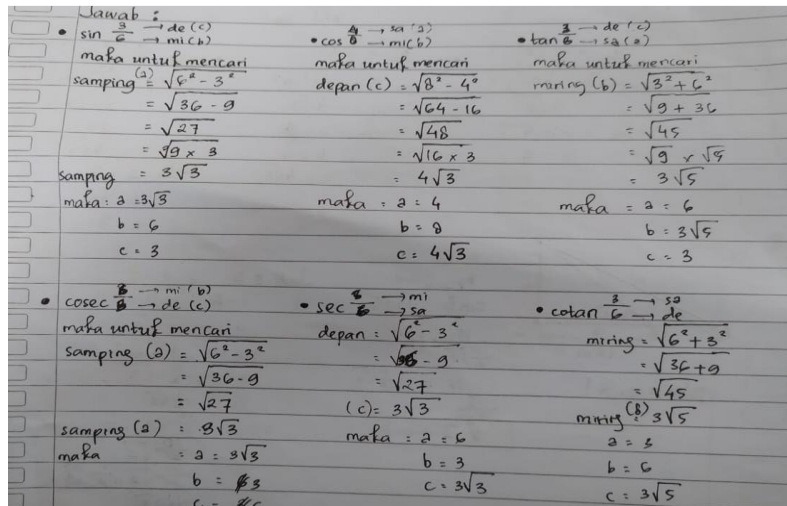 Jawab :
• sin 3/6 → de (c) → mi (b)
maka untuk mencari
samping (a) = √6² - 3²
= √36 - 9
= √27
= √9 x 3
samping = 3√3
maka : a = 3√3
b = 6
c = 3
• cos 4/8 → sa (a) → mi (b)
maka untuk mencari
depan (c) = √8² - 4²
= √64 - 16
= √48
= √16 x 3
= 4√3
maka = a = 4
b = 8
c = 4√3
• tan 3/6 → de (c) → sa (a)
maka untuk mencari
miring (b) = √3² + 6²
= √9 + 36
= √45
= √9 x √5
= 3√5
maka = a = 6
b = 3√5
c = 3
• cosec → mi (b) → de (c)
maka untuk mencari
samping (a) = √6² - 3²
= √36 - 9
= √27
samping (a) = 3√3
maka = a = 3√3
b = 3
• sec → mi → sa
depan = √6² - 3²
= √36 - 9
= √27
(c) = 3√3
maka = a = 6
b = 3
c = 3√3
• cotan 3/6 → sa → de
miring = √6² + 3²
= √36 + 9
= √45
miring (B) = 3√5
a = 3
b = 6
c = 3√5